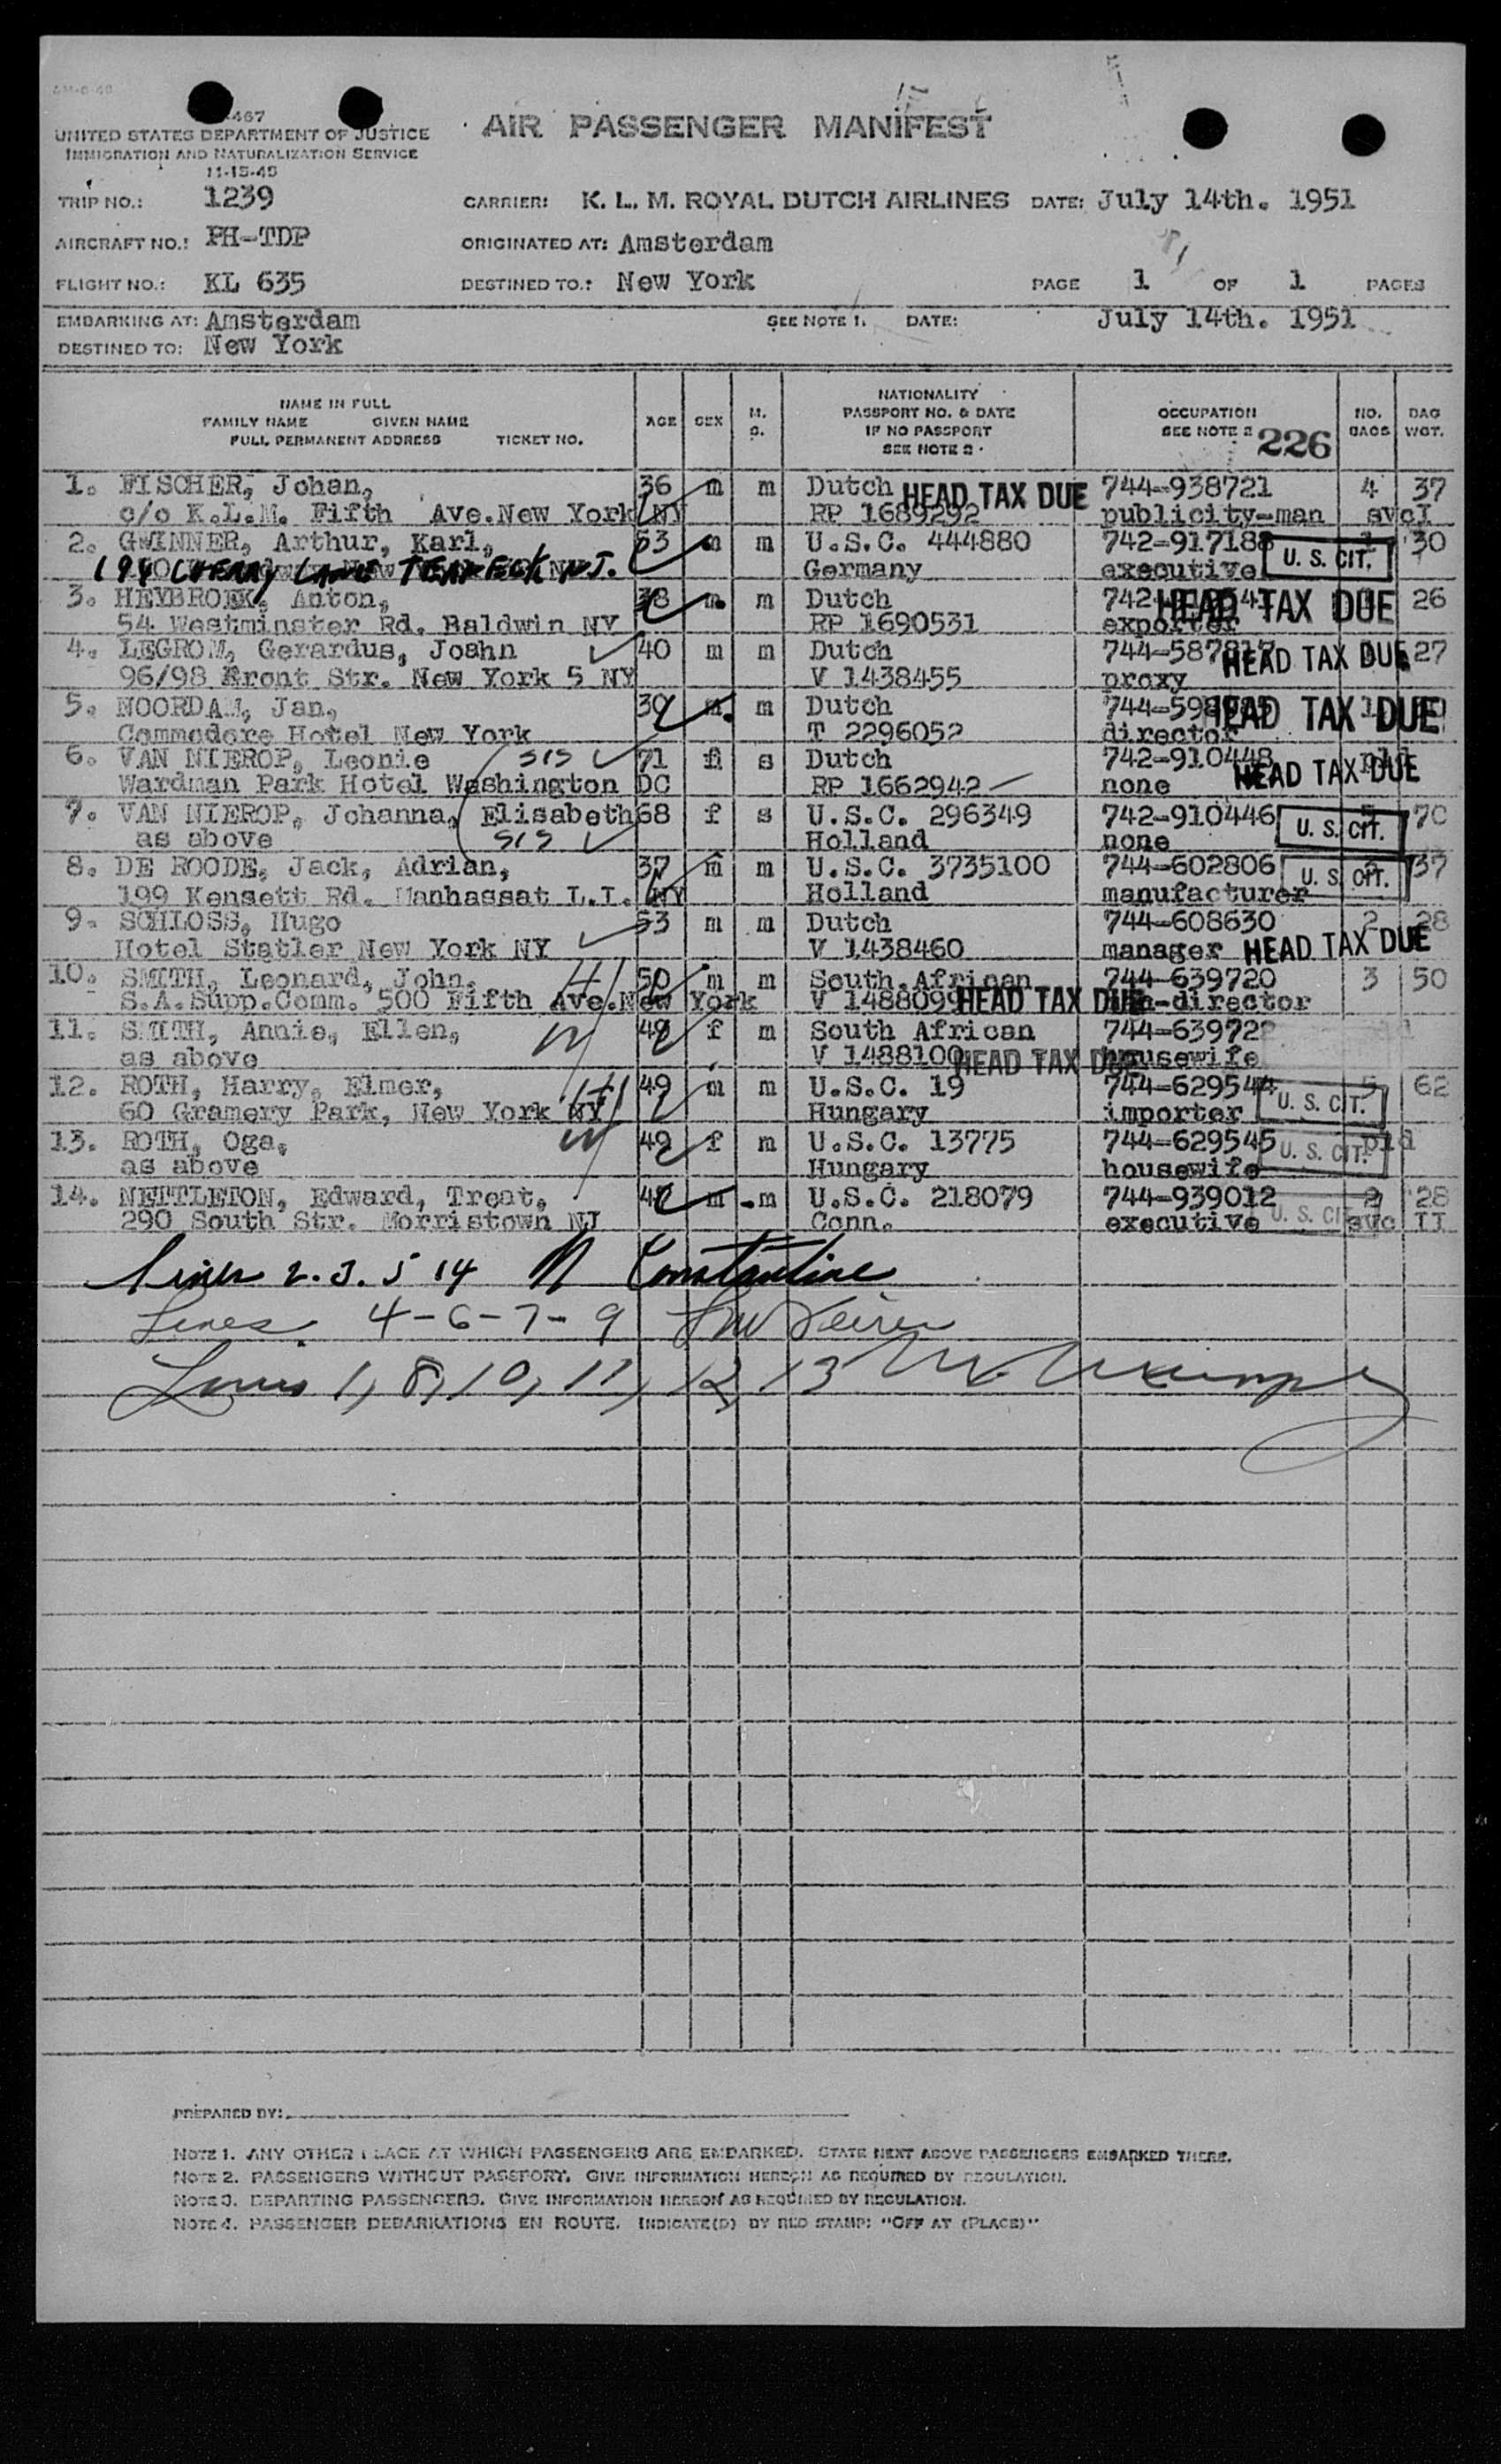 467
UNITED STATES DEPARTMENT OF JUSTICE
IMMIGRATION AND NATURALIZATION SERVICE
11-15-45
AIR PASSENGER MANIFEST
TRIP NO.: 1239 CARRIER: K. L. M. ROYAL DUTCH AIRLINES DATE: July 14th. 1951
AIRCRAFT NO.: PH-TDP ORIGINATED AT: Amsterdam
FLIGHT NO.: KL 635 DESTINED TO.: New York PAGE 1 OF 1 PAGES
EMBARKING AT: Amsterdam SEE NOTE 1. DATE: July 14th. 1951
DESTINED TO: New York
NAME IN FULL
FAMILY NAME GIVEN NAME
FULL PERMANENT ADDRESS TICKET NO.
AGE SEX M. S.
NATIONALITY
PASSPORT NO. & DATE
IF NO PASSPORT
SEE NOTE 2.
OCCUPATION
SEE NOTE 2 226
NO. BAGS
BAG WGT.
1. FISCHER, Johan, 36 m m Dutch HEAD TAX DUE 744-938721 4 37
c/o K.L.M. Fifth Ave.New York NY RP 1689292 publicity-man svcI
2. GWINNER, Arthur, Karl, 53 m m U.S.C. 444880 742-917188 30
194 CHERRY LANE TEANECK N.J. Germany executive U. S. CIT.
3. HEYBROEK, Anton, 38 m m Dutch HEAD TAX DUE 26
54 Westminster Rd. Baldwin NY RP 1690531 exporter
4. LEGROM, Gerardus, Joahn 40 m m Dutch 744-587817 27
96/98 Front Str. New York 5 NY V 1438455 proxy HEAD TAX DUE
5. NOORDAM, Jan, 39 m m Dutch HEAD TAX DUE
Commodore Hotel New York T 2296052 director
6. VAN NIEROP, Leonie SIS 71 f s Dutch 742-910448 pld
Wardman Park Hotel Washington DC RP 1662942 none HEAD TAX DUE
7. VAN NIEROP, Johanna, Elisabeth 68 f s U.S.C. 296349 742-910446 70
as above SIS Holland none U. S. CIT.
8. DE ROODE, Jack, Adrian, 37 m m U.S.C. 3735100 744-602806 37
199 Kensett Rd. Manhassat L.I. NY Holland manufacturer U. S. CIT.
9. SCHLOSS, Hugo 53 m m Dutch 744-608630 2 28
Hotel Statler New York NY V 1438460 manager HEAD TAX DUE
10. SMITH, Leonard, John, H 50 m m South African 744-639720 3 50
S.A.Supp.Comm. 500 Fifth Ave.New York V 1488099 HEAD TAX DUE -director
11. SMITH, Annie, Ellen, W 49 f m South African 744-639722
as above V 1488100 HEAD TAX DUE housewife
12. ROTH, Harry, Elmer, H 49 m m U.S.C. 19 744-629544 5 62
60 Gramery Park, New York NY Hungary importer U. S. CIT.
13. ROTH, Oga, W 49 f m U.S.C. 13775 744-629545 pld
as above Hungary housewife U. S. CIT.
14. NETTLETON, Edward, Treat, 42 m m U.S.C. 218079 744-939012 2 28
290 South Str. Morristown NJ Conn. executive U. S. CIT. svc II
Lines 2. 3. 5 14 N Constantine
Lines 4-6-7-9
Lines 1, 8, 10, 11, 12, 13
PREPARED BY:
NOTE 1. ANY OTHER PLACE AT WHICH PASSENGERS ARE EMBARKED. STATE NEXT ABOVE PASSENGERS EMBARKED THERE.
NOTE 2. PASSENGERS WITHOUT PASSPORT. GIVE INFORMATION HEREON AS REQUIRED BY REGULATION.
NOTE 3. DEPARTING PASSENGERS. GIVE INFORMATION HEREON AS REQUIRED BY REGULATION.
NOTE 4. PASSENGER DEBARKATIONS EN ROUTE. INDICATE(D) BY RED STAMP: "OFF AT (PLACE)"